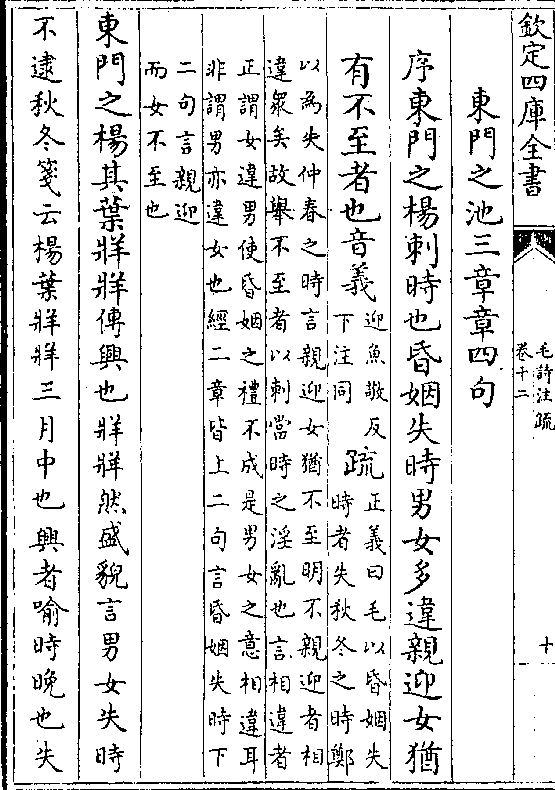 欽定四庫全書
毛詩注疏
卷十二
十
東門之池三章章四句
序東門之楊刺時也昏姻失時男女多違親迎女猶
有不至者也音義
迎魚敬反
下注同
疏
正義曰毛以昏姻失
時者失秋冬之時鄭
以為失仲春之時言親迎女猶不至明不親迎者相
違衆矣故舉不至者以刺當時之淫亂也言相違者
正謂女違男使昏姻之禮不成是男女之意相違耳
非謂男亦違女也經二章皆上二句言昏姻失時下
二句言親迎
而女不至也
東門之楊其葉牂牂傳興也牂牂然盛貌言男女失時
不逮秋冬箋云楊葉牂牂三月中也興者喻時晚也失